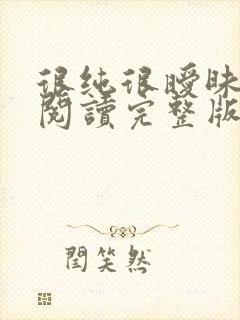 很純很曖昧
閱讀完整版
閆笑然